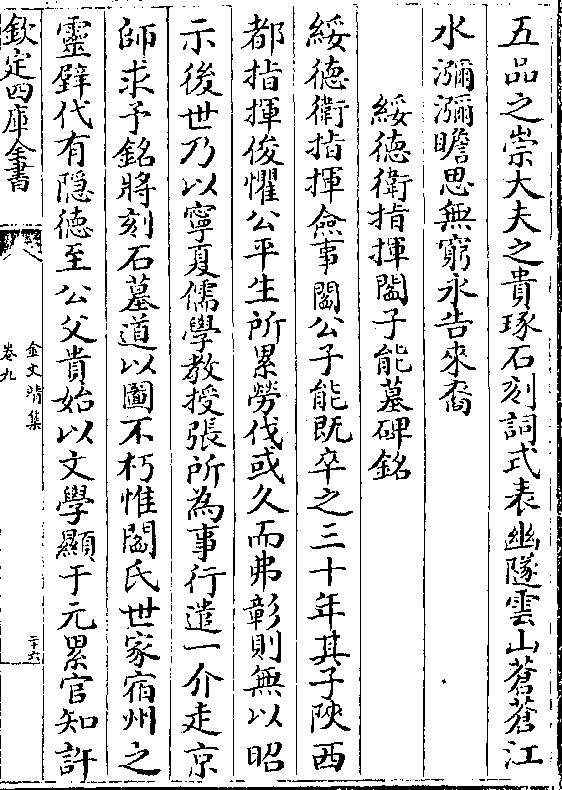 五品之崇大夫之貴琢石刻詞式表幽隧雲山蒼蒼江
水瀰瀰瞻思無窮永告來裔
綏德衛指揮閻子能墓碑銘
綏德衛指揮僉事閻公子能既卒之三十年其子陜西
都指揮俊懼公平生所累勞伐或久而弗彰則無以昭
示後世乃以寧夏儒學教授張所為事行遣一介走京
師求予銘將刻石墓道以圖不朽惟閻氏世家宿州之
靈璧代有隠德至公父貴始以文學顯于元累官知許
欽定四庫全書
金文靖集
卷九
二十六